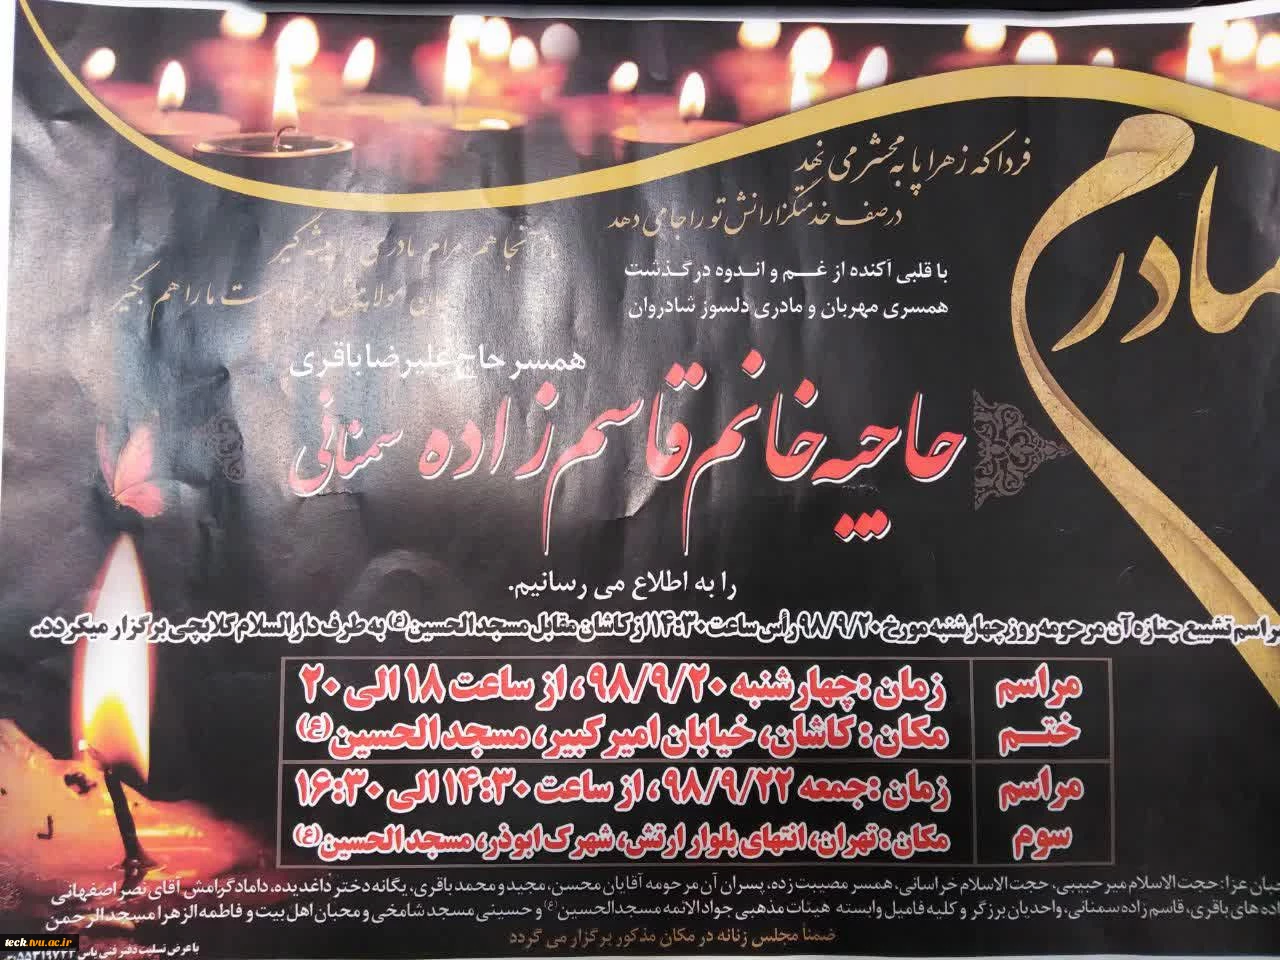 مادرم
فردا که زهرا پا به محشر می نهد
در صف خدمتگزارانش تو را جا می دهد
آنجا هم مرام مادری پیشه گیر
دست ما را هم بگیر
با قلبی آکنده از غم و اندوه درگذشت
همسری مهربان و مادری دلسوز شادروان
همسر حاج علیرضا باقری
حاجیه خانم قاسم زاده سمنانی
را به اطلاع می رسانیم.
مراسم تشییع جنازه آن مرحومه روز چهارشنبه مورخ ۹۸/۹/۲۰ رأس ساعت ۱۴:۳۰ از کاشان مقابل مسجد الحسین (ع) به طرف دار السلام کلابچی برگزار میگردد.
مراسم ختم
زمان : چهارشنبه ۹۸/۹/۲۰ ، از ساعت ۱۸ الی ۲۰
مکان : کاشان، خیابان امیر کبیر، مسجد الحسین (ع)
مراسم سوم
زمان : جمعه ۹۸/۹/۲۲ ، از ساعت ۱۴:۳۰ الی ۱۶:۳۰
مکان : تهران، انتهای بلوار ارتش، شهرک ابوذر، مسجد الحسین (ع)
عزا: حجت الاسلام میرحبیبی، حجت الاسلام خراسانی، همسر مصیبت زده، پسران آن مرحومه آقایان محسن، مجید و محمد باقری، یگانه دختر داغدیده، داماد گرامش آقای نصر اصفهانی
های باقری، قاسم زاده سمنانی، واحدیان برزگر و کلیه فامیل وابسته هیئات مذهبی جواد الائمه مسجد الحسین (ع) و حسینی مسجد شامخی و محبان اهل بیت و فاطمه الزهرا مسجد الرحمن
ضمناً مجلس زنانه در مکان مذکور برگزار می گردد
با عرض تسلیت دفتر فنی یاس
teck.tvu.ac.ir